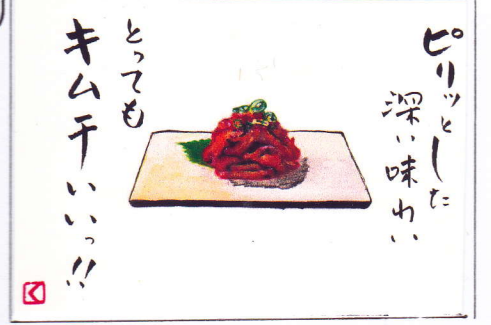 ピリッとした
深い味わい
とっても
キムチいいっ!!
く